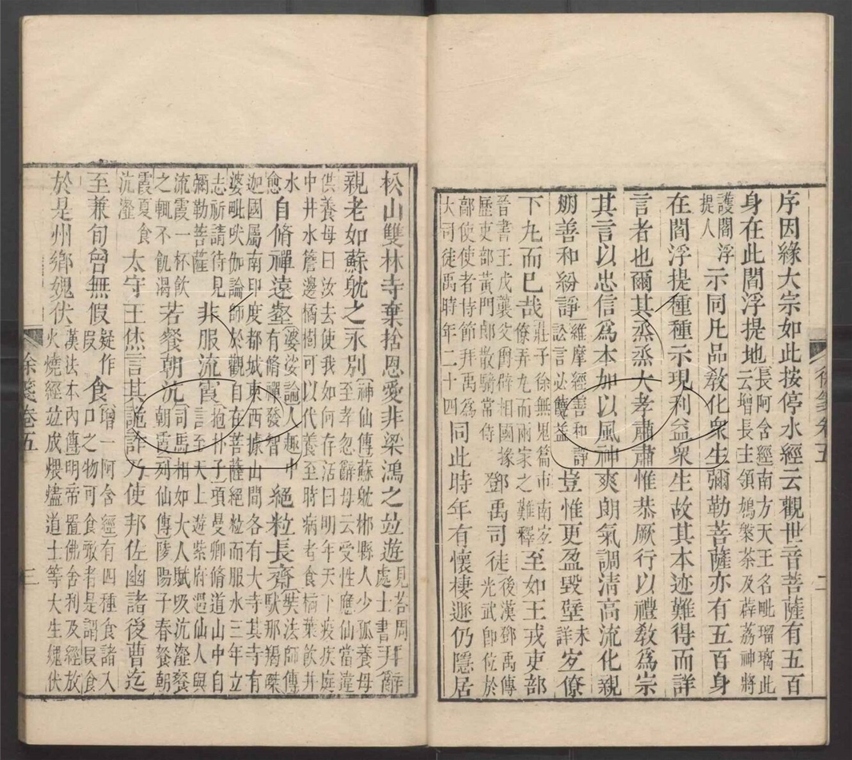 序因緣大宗如此按停水經云觀世音菩薩有五百
身在此閻浮提地長阿含經南方天王名毗瑠璃此
云增長主領鳩槃茶及薜荔神將
護閻浮
提人示同凡品敎化衆生彌勒菩薩亦有五百身
在閻浮提種種示現利益衆生故其本迹難得而詳
言者也爾其烝烝大孝肅肅惟恭厥行以禮敎爲宗
其言以忠信爲本加以風神爽朗氣調清高流化親
朋善和紛諍維摩經善和諍
訟言必饒益豈惟更盈毀璧未
詳宏僚
下丸而已哉莊子徐無鬼篇市南宜
僚弄丸而兩家之難釋至如王戎吏部
晉書王戎襲父爵辟相國掾
歷吏部黃門郎散騎常侍鄧禹司徒後漢鄧禹傳
光武即位於
鄗使使者持節拜禹爲
大司徒禹時年二十四同此時年有懷棲遯仍隱居
松山雙林寺棄捨恩愛非梁鴻之並遊見荅周
處士書拜辭
親老如蘇躭之永別神仙傳蘇躭郴縣人少孤養母
至孝忽辭母云受性應仙當違
供養母曰汝去使我如何存活曰明年天下疫疾庭
中井水簷邊橘樹可以代養至時病者食橘葉飲井
水
愈自脩禪遠壑有脩禪發智絕粒長齋奘法師傳
馱那羯磔
迦國屬南印度都城東西據山間各有大寺其寺有
婆毗吠伽論師於觀自在菩薩絕粒而服水三年立
志祈請待見
彌勒菩薩非服流霞抱朴子項曼卿脩道山中自
言至天上遊紫府遇仙人與
流霞一杯飲
之輒不飢渴若餐朝沆司馬相如大人賦吸沆瀣餐
朝霞列仙傳陵陽子春餐朝
霞夏食
沆瀣太守王烋言其詭詐乃使邦佐幽諸後曹迄
至兼旬曾無假疑作
叚食增一阿含經有四種食諸入
口之物可食噉者是謂叚食
於是州鄉媿伏漢法本內傳明帝置佛舍利及經放
火燒經並成煨燼道士等大生媿伏
徐箋卷五
二
徐箋卷五
三